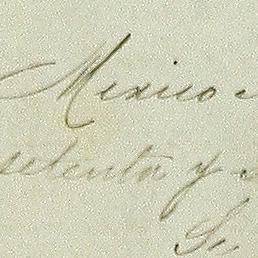 Mexico
setenta y
Su